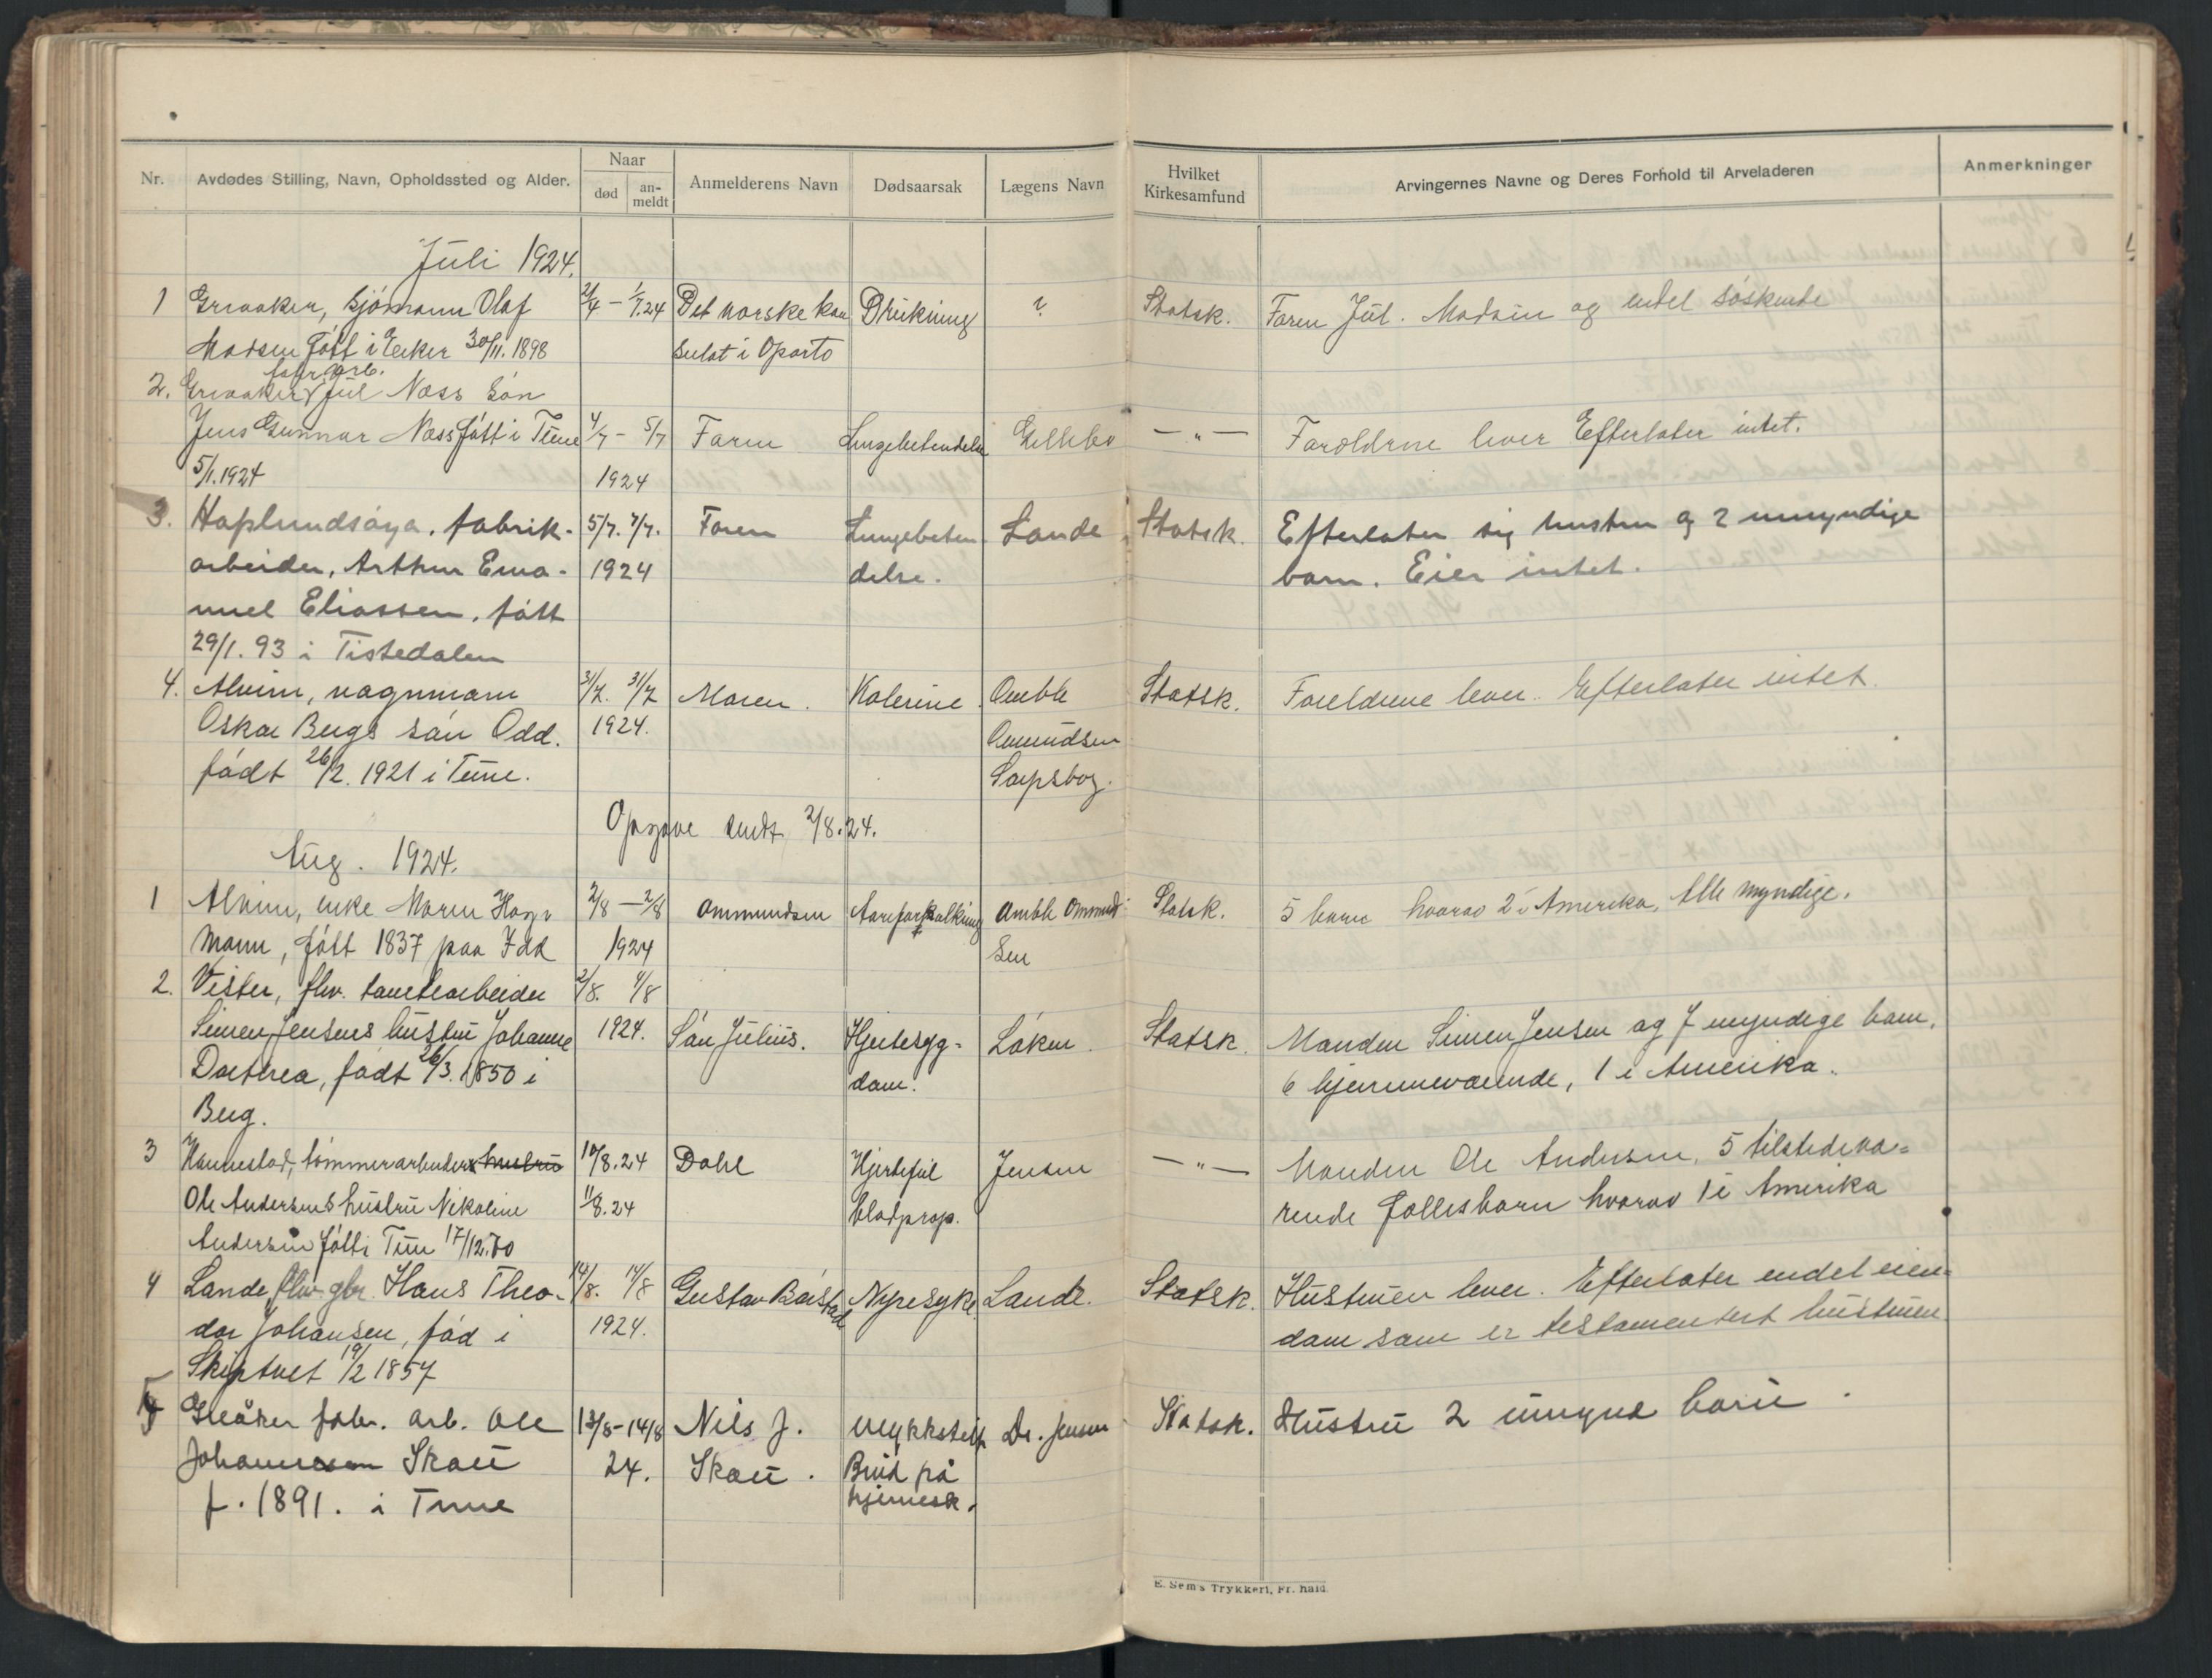 Nr.
Avdødes Stilling, Navn, Opholdssted og Alder.
Naar
død
an-
meldt
Anmelderens Navn
Dødsaarsak
Lægens Navn
Hvilket
Kirkesamfund
Arvingernes Navne og Deres Forhold til Arveladeren
Anmerkninger
Juli 1924.
1 Greaaker, Sjömann Olaf
Madsen född i Eeker 30/11. 1898
1/7.24
Det norske kon
sulat i Oporto
Drukning
?
Statsk.
Faren Jul. Madsen og endel söskende
2. Greaaker fabr. arb. Jul Næss sön
Jens Gunnar Næss fött i Tune
5/1.1924
4/7 - 5/7
1924
Faren
Lungebetendelse
Gellebo
— " —
Foræeldrene lever Efterlater intet.
3. Haslundsöya, fabrik-
arbeider, Arthur Ema-
nuel Eliassen, fött
29/1. 93 i Tistedalen
5/7. 7/7.
1924
Faren
Lungebeten
delse.
Lande
Statsk.
Efterlater sig hustru og 2 umyndige
barn. Eier intet.
4. Alvim, vognmann
Oskar Bergs sön Odd.
född 26/2. 1921 i Tune.
31/7. 31/7
1924.
Moren.
Kolerine
Amble
Omundsen
Sarpsborg.
Statsk.
Foreldrene lever. Efterlater intet.
Opgave sendt 2/8.24.
Aug. 1924.
1 Alvim, enke Maren Hage
mann, fött 1837 paa Idd
2/8 — 2/8
1924
Ommundsen
Aareforkalkning
Amble Ommund
sen
Statsk.
5 barn hvorav 2 i Amerika, Alle myndige.
2. Vister, fhv. tomtearbeider
Simen Jensens hustru Johanne
Dorthea, född 26/3. 1850 i
Berg.
2/8. 4/8
1924.
Sön Julius.
Hjertesyg-
dom.
Löken
Statsk.
Manden Simen Jensen og 7 myndige barn,
6 hjemmeværende, 1 i Amerika.
3 Hannestad, tömmerarbeider hustru
Ole Andersens hustru Nikoline
Andersen fött i Tune 17/12.70
10/8.24
11/8.24
Dahl
Hjertefeil
blodprop.
Jensen
— " —
Manden Ole Andersen, 5 tilstedevæ=
rende fællesbarn hvorav 1 i Amerika
4 Lande, fhv. gbr. Hans Theo-
dor Johansen, föd i
Skiptvet 19/2 1857
14/8. 14/8
1924.
Gustav Börstad
Nyresyke
Lande.
Statsk.
Hustruen lever. Efterlater endel eien=
dom som er testamentert hustruen.
5 Greåker fabr. arb. Ole
Johannesen Skau
f. 1891. i Tune
13/8-14/8
24.
Nils J.
Skau.
Ulykkestilf
Brud på
hjernesk.
Dr. Jensen
Statsk.
Hustru 2 umynd barn.
E. Sem's Trykkeri, Fr.hald.